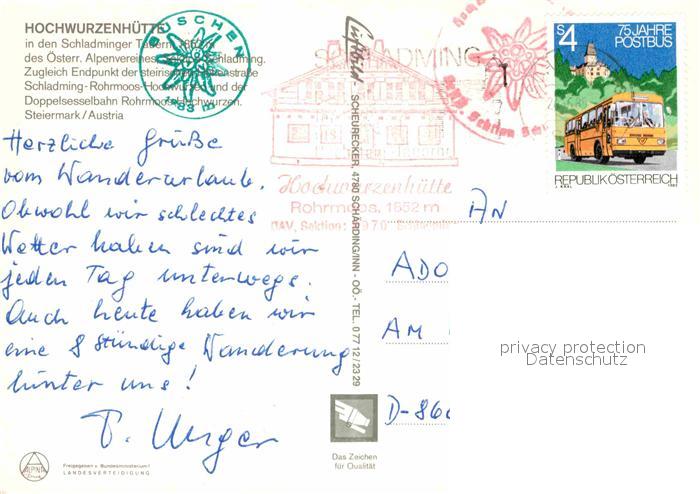 HOCHWURZENHÜTTE
in den Schladminger Tauern, 1852 m
des Österr. Alpenvereines, Schladming.
Zugleich Endpunkt der steirischen
Schladming-Rohrmoos-Hochwurzen und der
Doppelsesselbahn Rohrmoos-Hochwurzen.
Steiermark/Austria
GUSCHEN
1983 m
Herzliche Grüße
vom Wanderurlaub.
Obwohl wir schlechtes
Wetter haben sind wir
jeden Tag unterwegs.
Auch heute haben wir
eine 8 stündige Wanderung
hinter uns!
T. Unger
ALPINA
Druck
Freigegeben v. Bundesministerium f.
LANDESVERTEIDIGUNG
Luftbild SCHEURECKER, 4780 SCHÄRDING/INN - OÖ. - TEL. 0 77 12 / 23 29
Das Zeichen
für Qualität
SCHLADMING
Hochwurzenhütte
Rohrmoos, 1852 m
ÖAV, Sektion: 8970 Schladming
S4
75 JAHRE
POSTBUS
REPUBLIK ÖSTERREICH
AN
ADO
AM
D-86
privacy protection
Datenschutz